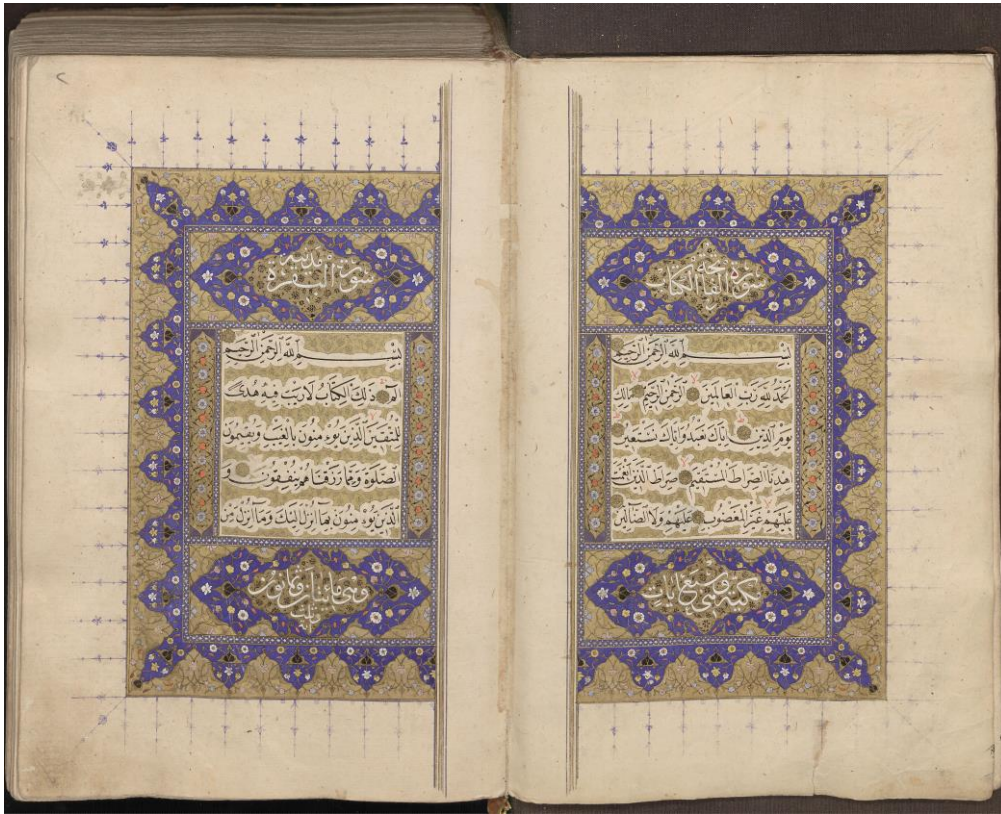 سورة الفاتحة الكتاب
بِسْمِ اللَّهِ الرَّحْمَنِ الرَّحِيمِ
الحَمْدُ لِلَّهِ رَبِّ الْعَالَمِينَ الرَّحْمَنِ الرَّحِيمِ مَالِكِ
يَوْمِ الدِّينِ إِيَّاكَ نَعْبُدُ وَإِيَّاكَ نَسْتَعِينُ
اهْدِنَا الصِّرَاطَ الْمُسْتَقِيمَ صِرَاطَ الَّذِينَ أَنْعَمْتَ
عَلَيْهِمْ غَيْرِ الْمَغْضُوبِ عَلَيْهِمْ وَلَا الضَّالِّينَ
مكية وهي سبع ايات
سورة البقرة مدنية
بِسْمِ اللَّهِ الرَّحْمَنِ الرَّحِيمِ
الم ذَلِكَ الْكِتَابُ لَا رَيْبَ فِيهِ هُدًى
لِلْمُتَّقِينَ الَّذِينَ يُؤْمِنُونَ بِالْغَيْبِ وَيُقِيمُونَ
الصَّلَوةَ وَمِمَّا رَزَقْنَاهُمْ يُنْفِقُونَ وَ
الَّذِينَ يُؤْمِنُونَ بِمَا أُنْزِلَ إِلَيْكَ وَمَا أُنْزِلَ مِنْ
وهي مائتان وثمانون